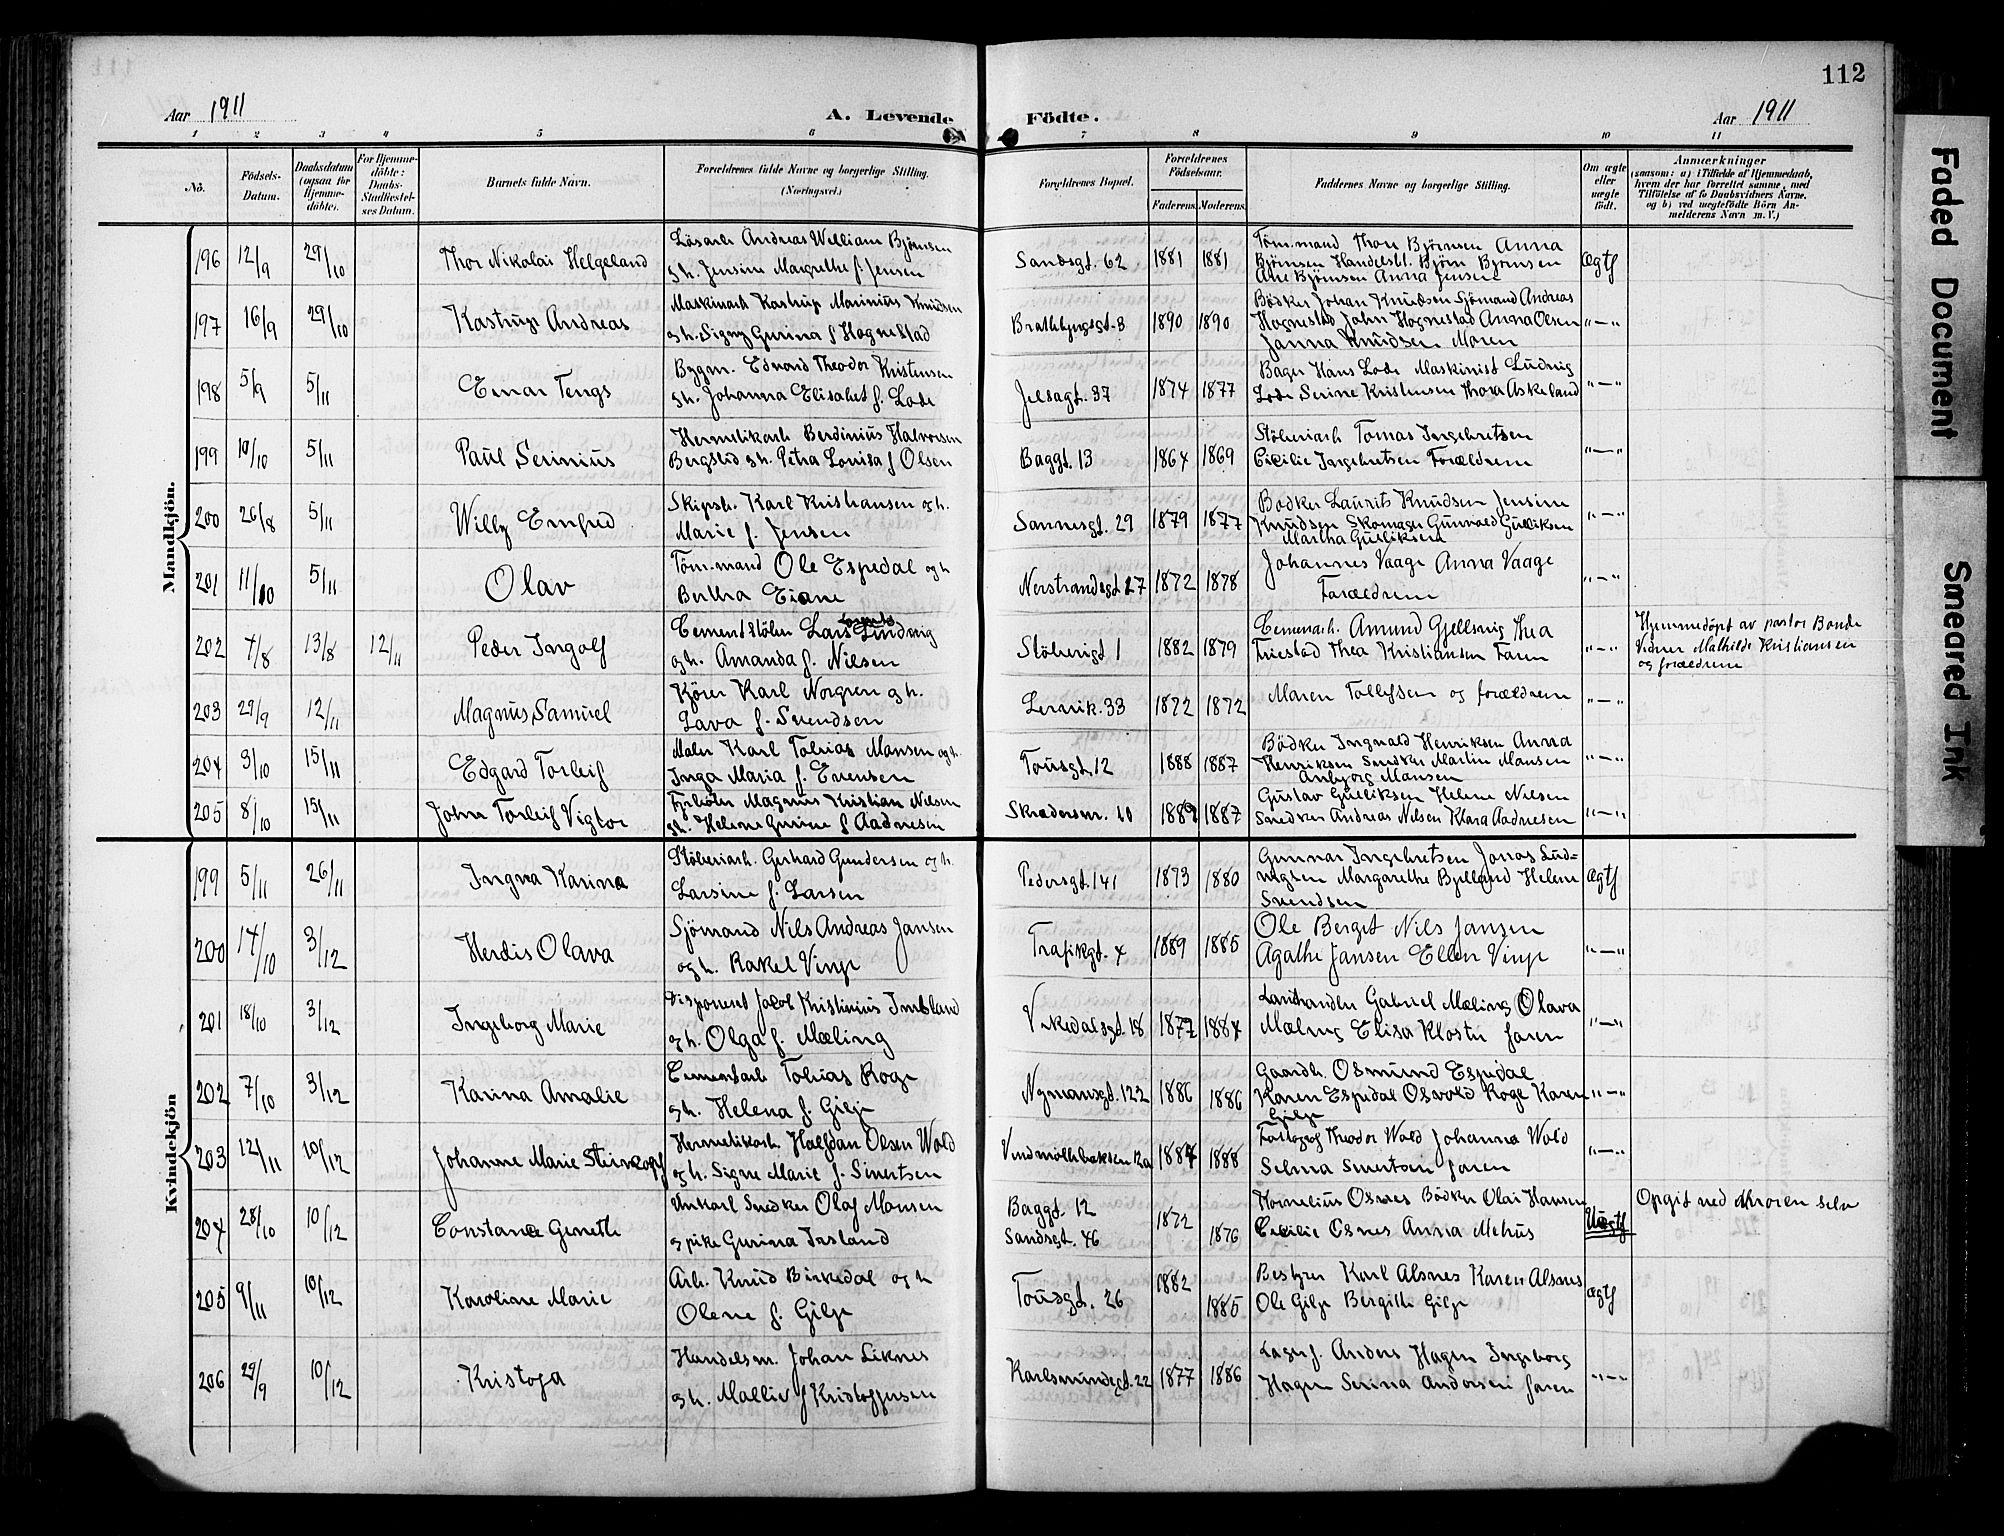 112
Aar 1911
A. Levende Födte.
Aar 1911
1 2 3 4 5 6 7 8 9 10 11
No.
Födsels-Datum.
Daabsdatum (ogsaa for Hjemme-döbte).
For Hjemme-döbte: Daabs-Stadfæstel-ses Datum.
Barnets fulde Navn.
Forældrenes fulde Navne og borgerlige Stilling.
(Næringsvei.)
Forældrenes Bopæl.
Forældrenes Födselsaar.
Faderens. Moderens.
Faddernes Navne og borgerlige Stilling.
Om ægte eller uægte födt.
Anmærkninger
(saasom: a) i Tilfælde af Hjemmedaab, hvem der har forrettet samme, med Tilföielse af to Daabsvidners Navne. og b) ved uægtefödte Börn An-melderens Navn m. V.)
Mandkjön.
196 12/9 29/10 Thor Nikolai Helgeland
Lösarb Andreas William Björnsen
gh. Jensine Margrethe f. Jensen
Sandsgt. 62 1881 1881
Töm.mand Thore Björnsen Anna
Björnsen Handelsbt. Björn Björnsen
Ane Björnsen Anna Jensen
Ægtf
197 16/9 29/10 Kastrup Andreas
Maskinarb Kastrup Marinius Knudsen
gh. Signy Gurina f Hognestad
Brathbyngsgt. 8 1890 1890
Bödker Johan Knudsen Sjömand Andreas
Hognestad John Hognestad Anna Olsen
Janna Knudsen Maren
" — "
198 5/9 5/11 Einar Tengs
Bygm. Edvard Theodor Kristensen
gh. Johanna Elisabet f. Lode
Jelsagt. 37 1874 1877
Bager Hans Lode Maskinist Ludvig
Lode Serine Kristensen Thora Askeland
" — "
199 10/10 5/11 Paul Serinius
Hermetikarb Berdinius Halvorsen
Bergslid gh. Petra Lovisa f Olsen
Baggt. 13 1864 1869
Stöberiarb Tomas Ingebretsen
Cecilie Ingebretsen Forældrene
" — "
200 26/8 5/11 Willy Emfred
Skipsb. Karl Kristiansen og h.
Marie f. Jensen
Sannesgt. 29 1879 1877
Bödker Laurits Knudsen Jensine
Knudsen Skomager Gunvald Gulliksen
Martha Gulliksen
" — "
201 11/10 5/11 Olav
Töm.mand Ole Espedal og h
Bertha Eiane
Nerstrandsgt. 27 1872 1878
Johannes Vaage Anna Vaage
Forældrene
" — "
202 7/8 13/8 12/11 Peder Ingolf
Cementstöber Lars Ludvig
og h. Amanda f. Nilsen
Stöberigt 1 1882 1879
Cemenarb. Amund Gjellsvig Thea
Friestad Thea Kristiansen Faren
" — "
Hjemmedöpt av pastor Bonde
Vidner Mathilde Kristiansen
og forældrene
203 29/9 12/11 Magnus Samuel
Kjörer Karl Norgren og h.
Lava f. Svendsen
Lervik. 33 1872 1872
Maren Tollefsen og forældrene
" — "
204 3/10 15/11 Edgard Torleif
Maler Karl Tobias Mansen og h.
Inga Maria f. Evensen
Tousgt. 12 1888 1887
Bödker Ingvald Henriksen Anna
Henriksen Snedker Martin Mansen
Anbjorg Mansen
" — "
205 8/10 15/11 John Torleif Vigtor
Fyrböter Magnus Kristian Nilsen
gh. Helene Gurine f Aadnesen
Skrædersm. 10 1889 1887
Gustav Gulliksen Helene Nilsen
Snedker Andreas Nilsen Klara Aadnesen
" — "
Kvindekjön
199 5/11 26/11 Ingva Karina
Stöberiarb. Gerhard Gundersen og h.
Larsine f. Larsen
Pedersgt. 141 1873 1880
Gunnar Ingebretsen Jonas Lud=
vigsen Margarethe Bjelland Helene
Svendsen
Ægtf
200 14/10 3/12 Herdis Olava
Sjömand Nils Andreas Jansen
og h. Rakel Vinje
Trafikgt. 4 1889 1885
Ole Berget Nils Jansen
Agathe Jansen Ellen Vinje
" — "
201 18/10 3/12 Ingeborg Marie
Disponent Jacob Kristinius Imsland
og h. Olga f. Mæling
Vikedalsgt. 18 1877 1884
Landhandler Gabriel Mæling Olava
Mæling Elisa Kloster faren
" — "
202 7/10 3/12 Karina Amalie
Cementarb Tobias Roge
gh. Helena f. Gilje
Nymansgt. 122 1886 1886
Gaardb. Osmund Espedal
Karen Espedal Osvold Roge Karen
Gilje
" — "
203 12/11 10/12 Johanne Marie Steinkopf
Hermetikarb. Halfdan Olsen Wold
og h. Signe Marie f. Sivertsen
Vindmöllebakken 12a 1884 1888
Fotograf Theodor Wold Johanna Wold
Selma Sivertsen faren
" — "
204 28/10 10/12 Constance Genette
Unkarl Snedker Olaf Mansen
og pike Gurina Irsland
Baggt. 12
Sandsgt. 46 1872 1876
Kornelius Osnes Bödker Olai Hansen
Cecilie Osnes Anna Mehus
Uægtf
Opgit ved Moren selv
205 9/11 10/12 Karoline Marie
Arb. Knud Birkedal og h
Olene f. Gilje
Tousgt. 26 1882 1885
Bestyrer Karl Alsnes Karen Alsnes
Ole Gilje Bergithe Gilje
Ægtf
206 29/9 10/12 Kristofa
Handelsm. Johan Liknes
gh. Mallie f Kristoffersen
Karlsmindegt. 22 1877 1886
Lagerf. Anders Hagen Ingeborg
Hagen Serina Andersen faren
" — "
Faded Document
Smeared Ink